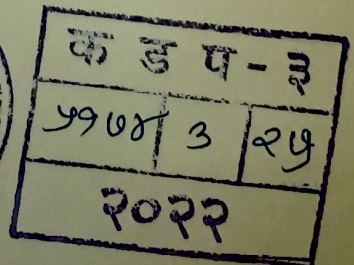 क ड प - ३
५१७४ 3 २५
२०२२